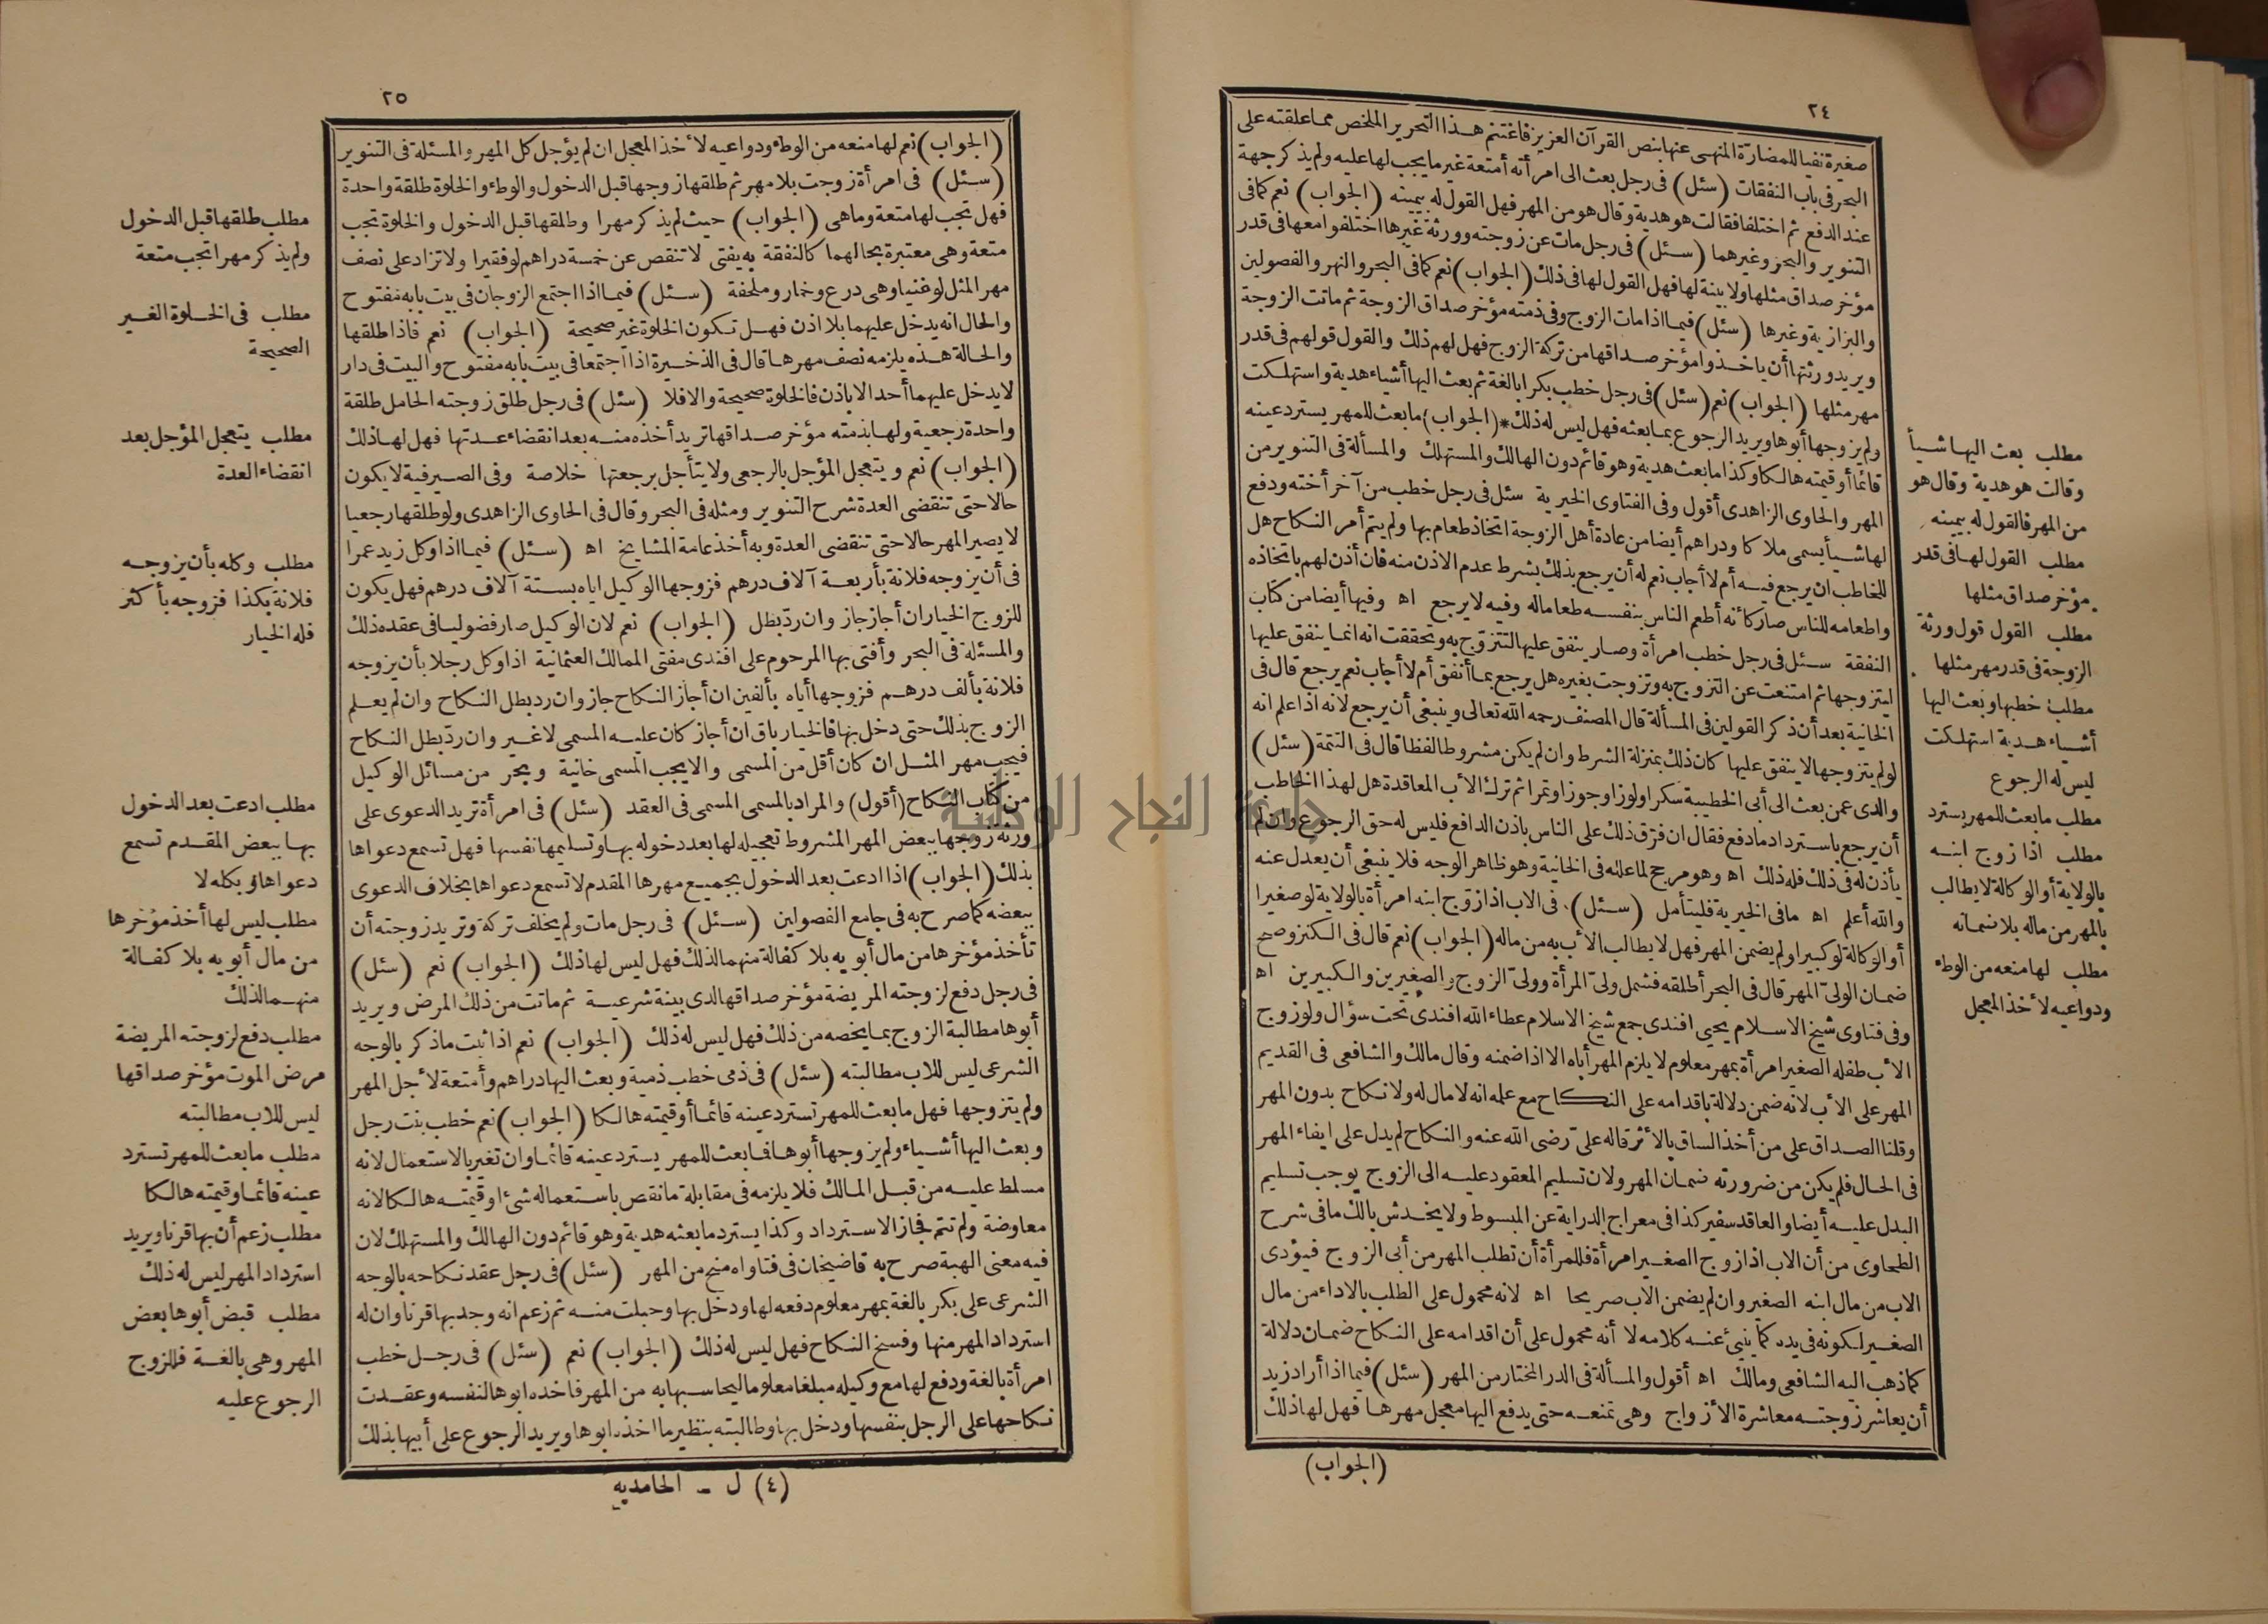 ٢٤
صغيرة نفيا للمضارّة المنهى عنها بنص القرآن العزيز فاغتنم هذا التحرير الملخص مما علقته على
البحر فى باب النفقات (سئل) فى رجل بعث الى امرأته أمتعة غير ما يجب لها عليه ولم يذكر جهة
عند الدفع ثم اختلفا فقالت هو هدية وقال هو من المهر فهل القول له بيمينه (الجواب) نعم كما فى
التنوير والبحر وغيرهما (سئل) فى رجل مات عن زوجته وورثة غيرها اختلفوا معها فى قدر
مؤخر صداق مثلها ولا بينة لها فهل القول لها فى ذلك (الجواب) نعم كما فى البحر والنهر والفصولين
والبزازية وغيرها (سئل) فيما اذا مات الزوج وفى ذمته مؤخر صداق الزوجة ثم ماتت الزوجة
ويريد ورثتها أن ياخذوا مؤخر صداقها من تركة الزوج فهل لهم ذلك والقول قولهم فى قدر
مهر مثلها (الجواب) نعم (سئل) فى رجل خطب بكرا بالغة ثم بعث اليها أشياء هدية واستهلكت
ولم يزوجها أبوها ويريد الرجوع بما بعثه فهل ليس له ذلك * (الجواب) ما بعث للمهر يسترد عينه
قائما أو قيمته هالكا وكذا ما بعث هدية وهو قائم دون الهالك والمستهلك والمسألة فى التنوير من
المهر والحاوى الزاهدى أقول وفى الفتاوى الخيرية سئل فى رجل خطب من آخر أخته ودفع
لها شيأ يسمى ملاكا ودراهم أيضا من عادة أهل الزوجة اتخاذ طعام بها ولم يتم أمر النكاح هل
للخاطب ان يرجع فيه أم لا أجاب نعم له أن يرجع بذلك بشرط عدم الاذن منه فان أذن لهم باتخاذه
واطعامه للناس صار كأنه أطعم الناس بنفسه طعاما له وفيه لا يرجع اه وفيها أيضا من كتاب
النفقة سئل فى رجل خطب امرأة وصار ينفق عليها لتتزوّج به وتحققت انه انما ينفق عليها
ليتزوجها ثم امتنعت عن التزوج به وتزوجت بغيره هل يرجع بما أنفق أم لا أجاب نعم يرجع قال فى
الخانية بعد أن ذكر القولين فى المسألة قال المصنف رحمه الله تعالى وينبغى أن يرجع لانه اذا علم انه
لو لم يتزوجها لا ينفق عليها كان ذلك بمنزلة الشرط وان لم يكن مشروطا لفظا قال فى التتمة (سئل)
والدى عمن بعث الى أبى الخطيبة سكرا ولوزا وجوزا وتمرا ثم ترك الأب المعاقدة هل لهذا الخاطب
أن يرجع باسترداد ما دفع فقال ان فرّق ذلك على الناس باذن الدافع فليس له حق الرجوع وان لم
يأذن له فى ذلك فله ذلك اه وهو مرجح لما علله فى الخانية وهو ظاهر الوجه فلا ينبغى أن يعدل عنه
والله أعلم اه ما فى الخيرية فليتأمل (سئل) فى الاب اذا زوّج ابنه امرأة بالولاية لو صغيرا
أو الوكالة لو كبيرا ولم يضمن المهر فهل لا يطالب الأب به من ماله (الجواب) نعم قال فى الكنز وصح
ضمان الولىّ المهر قال فى البحر أطلقه فشمل ولىّ المرأة وولىّ الزوج والصغيرين والكبيرين اه
وفى فتاوى شيخ الاسلام يحيى افندى جمع شيخ الاسلام عطاء الله افندى تحت سؤال ولو زوج
الأب طفله الصغير امرأة بمهر معلوم لا يلزم المهر أباه الا اذا ضمنه وقال مالك والشافعى فى القديم
المهر على الأب لانه ضمن دلالة باقدامه على النكاح مع علمه انه لا مال له ولا نكاح بدون المهر
وقلنا الصداق على من أخذ الساق بالأثر قاله علىّ رضى الله عنه والنكاح لم يدل على ايفاء المهر
فى الحال فلم يكن من ضرورته ضمان المهر ولان تسليم المعقود عليه الى الزوج يوجب تسليم
البدل عليه أيضا والعاقد سفير كذا فى معراج الدراية عن المبسوط ولا يخدش بالك ما فى شرح
الطحاوى من أن الاب اذا زوج الصغير امرأة فللمرأة أن تطلب المهر من أبى الزوج فيؤدى
الاب من مال ابنه الصغير وان لم يضمن الاب صريحا اه لانه محمول على الطلب بالاداء من مال
الصغير لكونه فى يده كما ينبئ عنه كلامه لا أنه محمول على أن اقدامه على النكاح ضمان دلالة
كما ذهب اليه الشافعى ومالك اه أقول والمسألة فى الدر المختار من المهر (سئل) فيما اذا أراد زيد
أن يعاشر زوجته معاشرة الأزواج وهى تمنعه حتى يدفع اليها معجل مهرها فهل لها ذلك
(الجواب)
مطلب بعث اليها شيأ
وقالت هو هدية وقال هو
من المهر فالقول له بيمينه
مطلب القول لها فى قدر
مؤخر صداق مثلها
مطلب القول قول ورثة
الزوجة فى قدر مهر مثلها
مطلب خطبها وبعث اليها
أشياء هدية استهلكت
ليس له الرجوع
مطلب ما بعث للمهر يسترد
مطلب اذا زوج ابنه
بالولاية أو الوكالة لا يطالب
بالمهر من ماله بلا ضمانه
مطلب لها منعه من الوطء
ودواعيه لأخذ المعجل
٢٥
(الجواب) نعم لها منعه من الوطء ودواعيه لأخذ المعجل ان لم يؤجل كل المهر والمسئلة فى التنوير
(سئل) فى امرأة زوجت بلا مهر ثم طلقها زوجها قبل الدخول والوطء والخلوة طلقة واحدة
فهل تجب لها متعة وما هى (الجواب) حيث لم يذكر مهرا وطلقها قبل الدخول والخلوة تجب
متعة وهى معتبرة بحالهما كالنفقة به يفتى لا تنقص عن خمسة دراهم لو فقيرا ولا تزاد على نصف
مهر المثل لو غنيا وهى درع وخمار وملحفة (سئل) فيما اذا اجتمع الزوجان فى بيت بابه مفتوح
والحال انه يدخل عليهما بلا اذن فهل تكون الخلوة غير صحيحة (الجواب) نعم فاذا طلقها
والحالة هذه يلزمه نصف مهرها قال فى الذخيرة اذا اجتمعا فى بيت بابه مفتوح والبيت فى دار
لا يدخل عليهما أحد الا باذن فالخلوة صحيحة والا فلا (سئل) فى رجل طلق زوجته الحامل طلقة
واحدة رجعية ولها بذمته مؤخر صداقها تريد أخذه منه بعد انقضاء عدتها فهل لها ذلك
(الجواب) نعم ويتعجل المؤجل بالرجعى ولا يتأجل برجعتها خلاصة وفى الصيرفية لا يكون
حالا حتى تنقضى العدة شرح التنوير ومثله فى البحر وقال فى الحاوى الزاهدى ولو طلقها رجعيا
لا يصير المهر حالا حتى تنقضى العدة وبه أخذ عامة المشايخ اه (سئل) فيما اذا وكل زيد عمرا
فى أن يزوجه فلانة بأربعة آلاف درهم فزوجها الوكيل اياه بستة آلاف درهم فهل يكون
للزوج الخيار ان أجاز جاز وان ردّ بطل (الجواب) نعم لان الوكيل صار فضوليا فى عقده ذلك
والمسئلة فى البحر وأفتى بها المرحوم على افندى مفتى الممالك العثمانية اذا وكل رجلا بأن يزوجه
فلانة بألف درهم فزوجها أياه بألفين ان أجاز النكاح جاز وان رد بطل النكاح وان لم يعلم
الزوج بذلك حتى دخل بها فالخيار باق ان أجاز كان عليه المسمى لا غير وان ردّ بطل النكاح
فيجب مهر المثل ان كان أقل من المسمى والا يجب المسمى خانية وبحر من مسائل الوكيل
من كتاب النكاح (أقول) والمراد بالمسمى المسمى فى العقد (سئل) فى امرأة تريد الدعوى على
ورثة زوجها ببعض المهر المشروط تعجيله لها بعد دخوله بها وتسليمها نفسها فهل تسمع دعواها
بذلك (الجواب) اذا ادعت بعد الدخول بجميع مهرها المقدم لا تسمع دعواها بخلاف الدعوى
ببعضه كما صرح به فى جامع الفصولين (سئل) فى رجل مات ولم يخلف تركة وتريد زوجته أن
تأخذ مؤخرها من مال أبويه بلا كفالة منهما لذلك فهل ليس لها ذلك (الجواب) نعم (سئل)
فى رجل دفع لزوجته المريضة مؤخر صداقها لدى بينة شرعية ثم ماتت من ذلك المرض ويريد
أبوها مطالبة الزوج بما يخصه من ذلك فهل ليس له ذلك (الجواب) نعم اذا ثبت ما ذكر بالوجه
الشرعى ليس للاب مطالبته (سئل) فى ذمى خطب ذمية وبعث اليها دراهم وأمتعة لأجل المهر
ولم يتزوجها فهل ما بعث للمهر تسترد عينه قائما أو قيمته هالكا (الجواب) نعم خطب بنت رجل
وبعث اليها أشياء ولم يزوجها أبوها فما بعث للمهر يسترد عينه قائما وان تغير بالاستعمال لانه
مسلط عليه من قبل المالك فلا يلزمه فى مقابلة ما نقص باستعماله شئ او قيمته هالكا لانه
معاوضة ولم تتم فجاز الاسترداد وكذا يسترد ما بعثه هدية وهو قائم دون الهالك والمستهلك لان
فيه معنى الهبة صرح به قاضيخان فى فتاواه منح من المهر (سئل) فى رجل عقد نكاحه بالوجه
الشرعى على بكر بالغة بمهر معلوم دفعه لها ودخل بها وحبلت منه ثم زعم انه وجد بها قرنا وان له
استرداد المهر منها وفسخ النكاح فهل ليس له ذلك (الجواب) نعم (سئل) فى رجل خطب
امرأة بالغة ودفع لها مع وكيله مبلغا معلوما ليحاسبها به من المهر فاخذه ابوها لنفسه وعقدت
نكاحها على الرجل بنفسها ودخل بها وطالبته بنظير ما اخذه ابوها ويريد الرجوع على أبيها بذلك
(٤) ل - الحامديه
مطلب طلقها قبل الدخول
ولم يذكر مهرا تجب متعة
مطلب فى الخلوة الغير
الصحيحة
مطلب يتعجل المؤجل بعد
انقضاء العدة
مطلب وكله بأن يزوجه
فلانة بكذا فزوجه بأكثر
فله الخيار
مطلب ادعت بعد الدخول
بها ببعض المقدم تسمع
دعواها وبكله لا
مطلب ليس لها أخذ مؤخرها
من مال أبويه بلا كفالة
منهما لذلك
مطلب دفع لزوجته المريضة
مرض الموت مؤخر صداقها
ليس للاب مطالبته
مطلب ما بعث للمهر تسترد
عينه قائما وقيمته هالكا
مطلب زعم أن بها قرنا ويريد
استرداد المهر ليس له ذلك
مطلب قبض أبوها بعض
المهر وهى بالغة فللزوج
الرجوع عليه
جامعة النجاح الوطنية